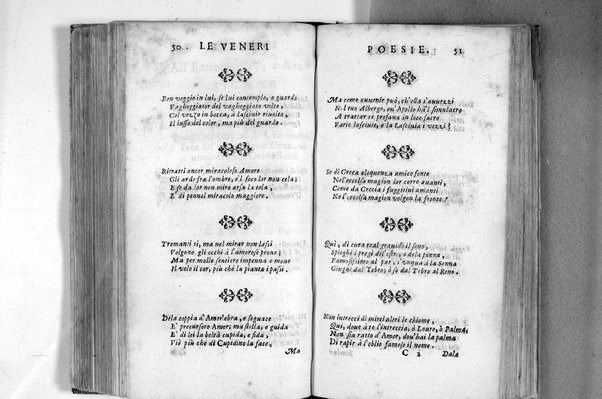 50 LE VENERI
Ben veggio in lui, se lui contemplo, e guardo
Vagheggiator del vagheggiato volto,
Col vezzo in bocca, à lascivir rivolto,
Il lusso del color, ma più del guardo.
Ritratti ancor miracoloso Amore
Gli arde frà l'ombre, e'l foco lor non cela;
E se da lor non miro arsa la tela,
E' di pennel miracolo maggiore.
Tremanti sì, ma nel mirar non lassi
Volgono gli occhi à l'amorose prove;
Ma per molle sentiero impenna e move
Il volo il cor, più che la pianta i passi.
Di la coppia d'Amor ebra, e seguace
E' precursore Amor; ma stella, e guida
E' di lei la beltà cupida, e fida,
Vie più che di Cupidine la face.
Ma
POESIE. 51
Ma come avvenir può, ch'ella s'avvezzi
Nel tuo Albergo, ov'Apollo hà'l simulacro
A trattar sì profana in loco sacro
Varie lascivie, e la Lascivia i vezzi?
Se di Greca eloquenza amico fonte
Ne l'eccelsa magion lor corre avanti,
Come da Grecia i fuggitivi amanti
Ne l'eccelsa magion volgon la fronte?
Quì, di cura real gravido il seno,
Spieghi i pregi de l'ostro, e de la penna,
Famosissimo al par, unqua à la Senna
Giugni dal Tebro, ò se dal Tebro al Reno.
Non intrecci di mirti altri le chiome,
Quì, dove à te s'intreccia, ò Lauro, ò Palma;
Non sia ratto d'Amor, dov'hai la palma
Di rapir à l'oblio famoso il nome.
C 2 Dala